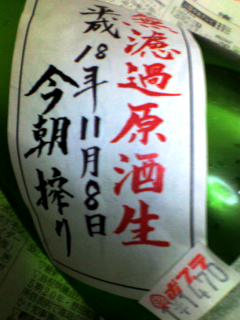 無濾過原酒生
平成18年11月8日
今朝搾り
¥1470